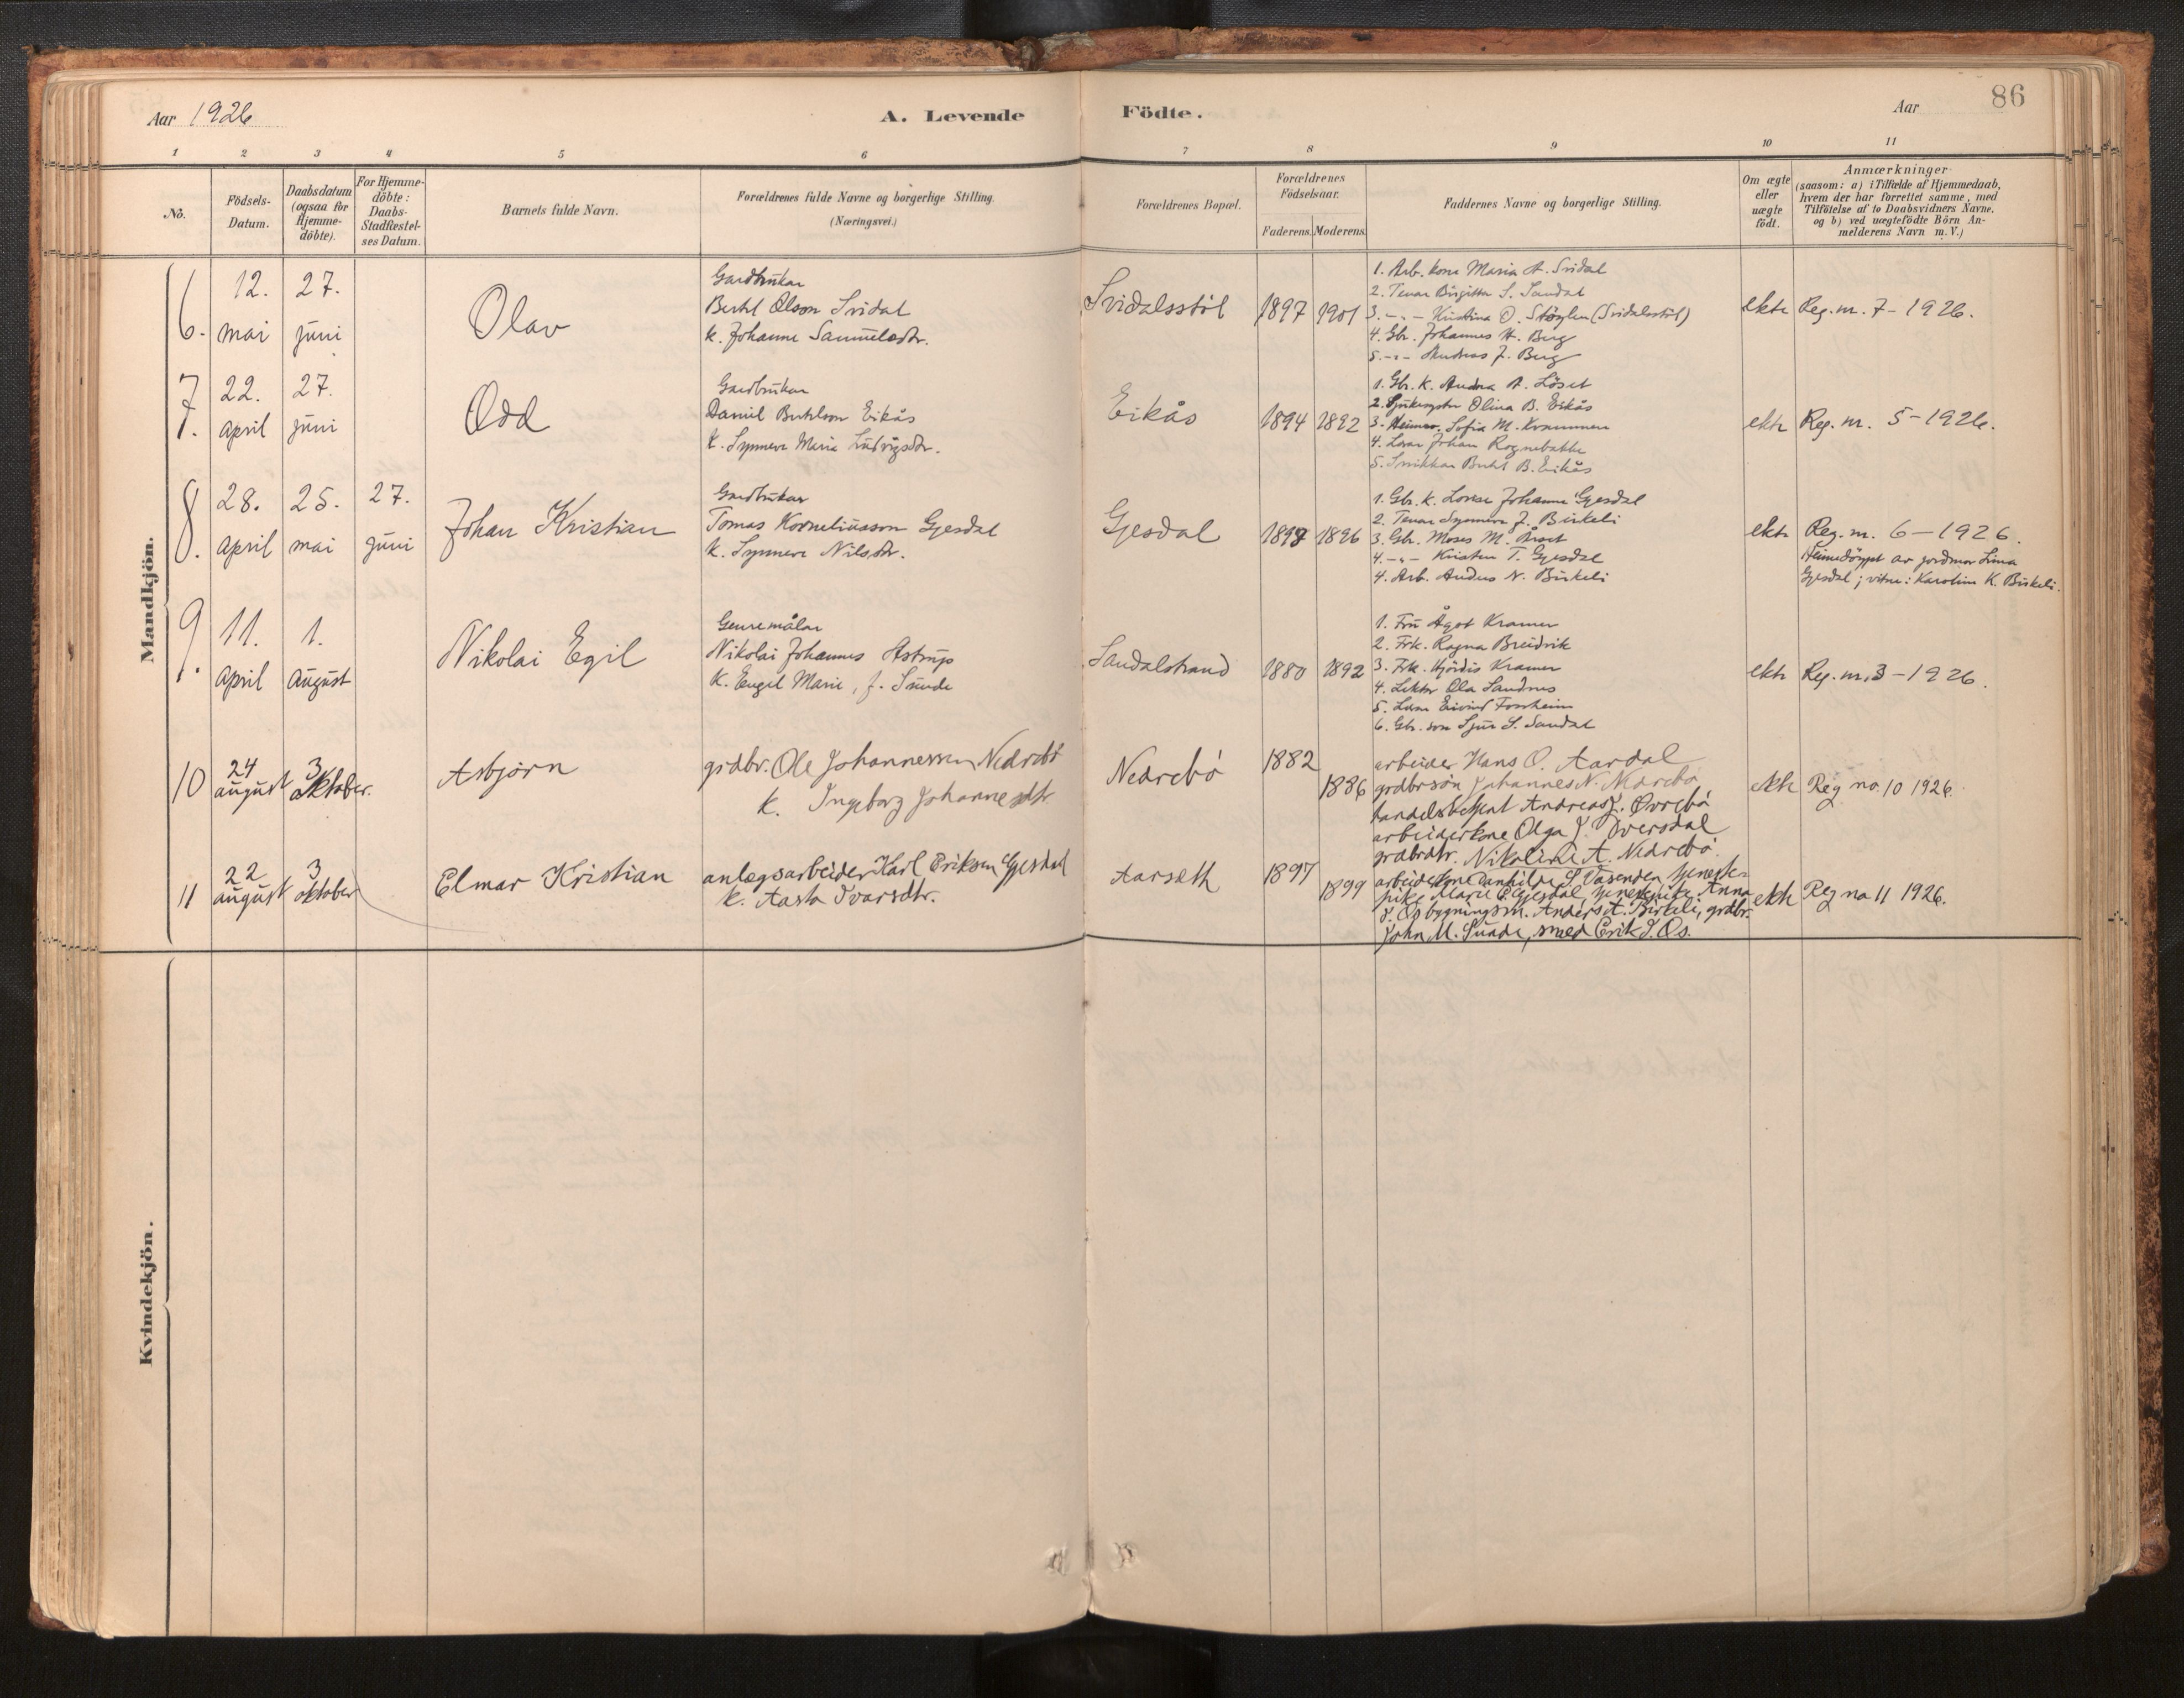 Aar 1926
A. Levende
Födte.
Aar
86
1 2 3 4 5 6 7 8 9 10 11
No.
Födsels-
Datum.
Daabsdatum
(ogsaa for
Hjemme-
döbte).
For Hjemme-
döbte:
Daabs-
Stadfestel-
ses Datum.
Barnets fulde Navn.
Forældrenes fulde Navne og borgerlige Stilling.
(Næringsvei.)
Forældrenes Bopæl.
Forældrenes
Födselsaar.
Faderens. Moderens.
Faddernes Navne og borgerlige Stilling.
Om ægte
eller
uægte
födt.
Anmærkninger
(saasom: a) i Tilfælde af Hjemmedaab,
hvem der har forrettet samme, med
Tilföielse af to Daabsvidners Navne,
og b) ved uægtefödte Börn An-
melderens Navn m.V.)
Mandkjön.
6.
12.
mai
27.
juni
Olav
Gardbrukar
Bertel Olson Svidal
k. Johanne Samuelsdtr.
Svidalsstöl
1897 1901
1. Arb. kone Maria A. Svidal
2. Tenar Birgitta S. Sandal
3. -"- Kristina O. (Svidalsstöl)
4. Gbr. Johannes H. Berg
5. -"- Andreas J. Berg
ekte
Reg. nr. 7 - 1926.
7.
22.
april
27.
juni
Odd
Gardbrukar
Daniel Bertelson Eikås
k. Synneve Marie Ludvigsdtr.
Eikås
1894 1892
1. Gbr. k. Andrea A. Löset
2. Sjukesyster Olina B. Eikås
3. Sofia M. Krammen
4. Lærar Johan Rognebakke
5. Snikkar Bertel B. Eikås
ekte
Reg. nr. 5 - 1926.
8.
28.
april
25.
mai
27.
juni
Johan Kristian
Gardbrukar
Tomas Korneliusson Gjesdal
k. Synneve Nilsdtr.
Gjesdal
1898 1896
1. Gbr. k. Lovise Johanne Gjesdal
2. Tenar Synneve J. Birkeli
3. Gbr. Moses M. Årset
4. -"- Kristen T. Gjesdal
4. Arb. Anders N. Birkeli
ekte
Reg. nr. 6 - 1926.
Heimedöypt av jordmor Lina
Gjesdal; vitne: Karoline K. Birkeli.
9.
11.
april
1.
august
Nikolai Egil
Genremålar
Nikolai Johannes Astrup
k. Engel Marie, f. Sunde
Sandalstrand
1880 1892
1. Fru Ågot Kramer
2. Frk. Ragna Breidvik
3. Frk. Hjördis Kramer
4. Lektor Ola Sandnes
5. Eivind Forsheim
6. Gbr. son Sjur S. Sandal
ekte
Reg. nr. 3 - 1926.
10
24
august
3
oktober.
Asbjörn
grdbr. Ole Johannessen Nedrebö
k. Ingeborg Johannesdtr.
Nedrebö
1882
1886
arbeider Hans O. Aardal
grdbrsön Johannes N. Nedrebö
handelsbetjent Andreas J. Övrebö
arbeiderkone Olga J. Iversdal
grdbrdtr. Nikoline A. Nedrebö.
ekte
Reg no. 10 1926.
11
22
august
3
oktober
Elmar Kristian
anlegsarbeider Karl Eriksen Gjesdal
k. Aasta Ivarsdtr.
Aarseth
1897
1899
arbeiderkone Danhilde S. Vasenden, tjeneste-
pike Marie E. Gjesdal, tjenestepike Anna
J. Os, bygningsm. Anders A. Birkeli, grdbr.
John M. Sunde, smed Erik J. Os.
ekte
Reg no 11 1926.
Kvindekjön.